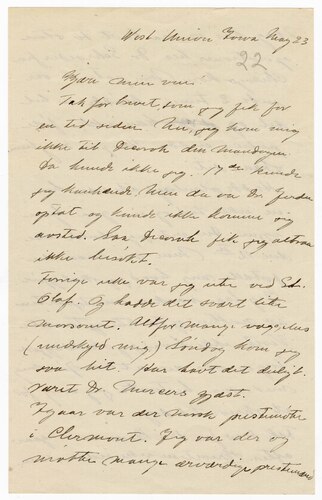 West Union Iowa May 23
22
Kjære min ven!
Tak for brevet, som jeg fik for
en tid siden. Nei, jeg kom mig
ikke til Decorah den mandagen.
Da kunde ikke jeg. 17de kunde
jeg kanhænde men da var Dr.
optat og kunde ikke komme sig
avsted. Saa Decorah fik jeg altsaa
ikke besøkt.
Forrige uke var jeg ute ved St.
Olaf. Og hadde det svært lite
morsomt. Altfor mange
(undskyld mig) Søndag kom jeg
saa hit. Har havt det deiligt.
været Dr. Mercers gjæst.
Igaar var der norsk prestemøte
i Clermont. Jeg var der og
møtte mange ærværdige prestemænd